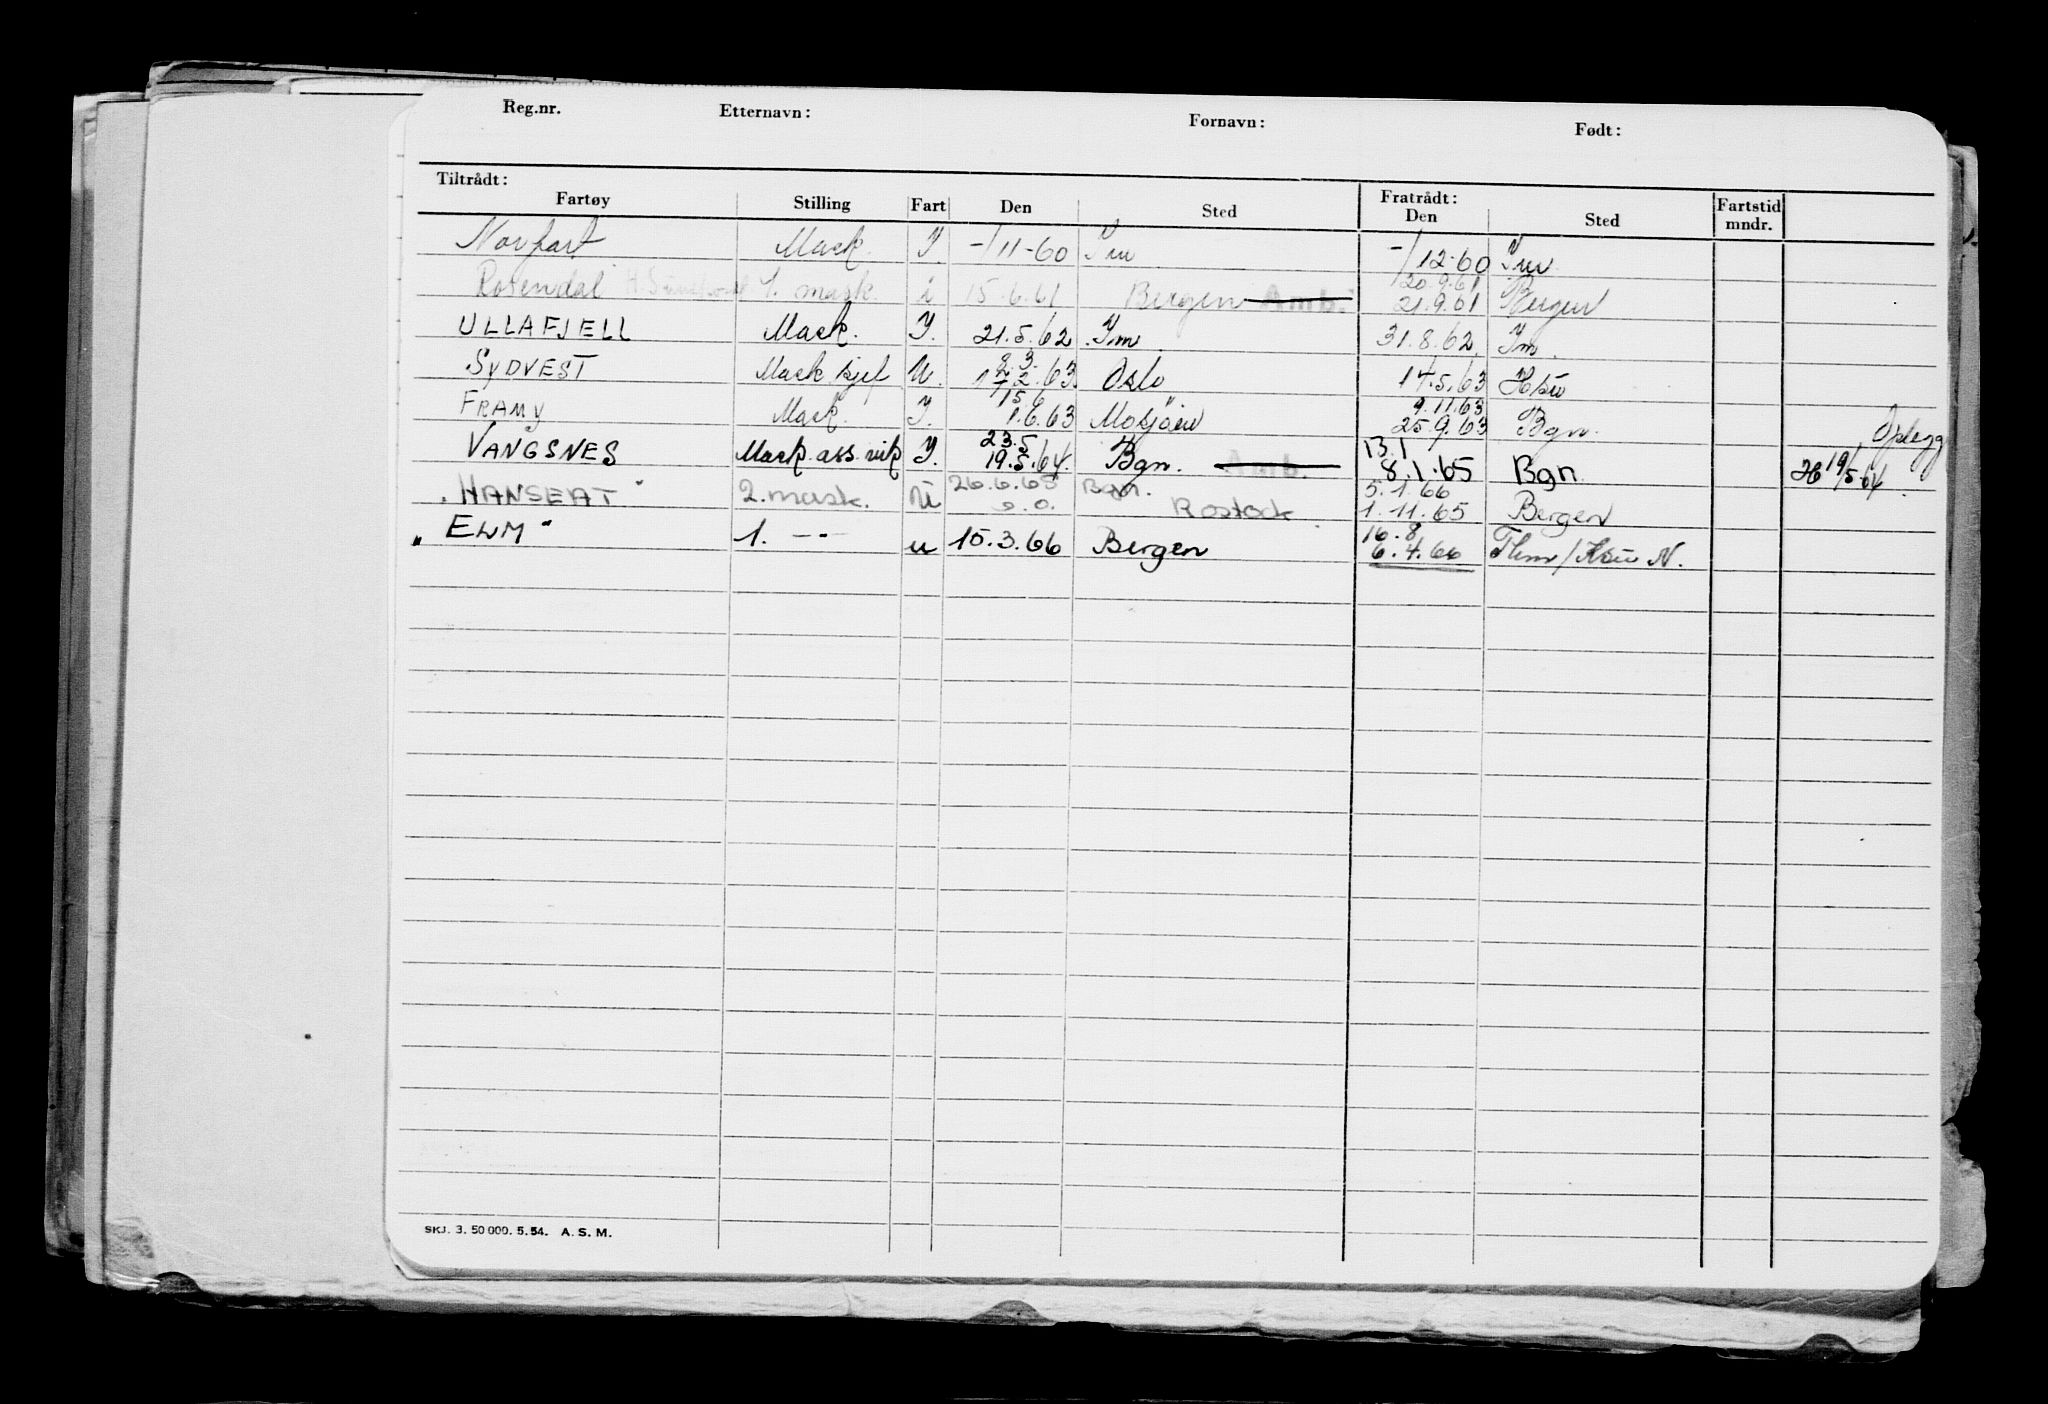 Reg.nr. Etternavn: Fornavn: Født:
Tiltrådt: Fratrådt:
Fartøy Stilling Fart Den Sted Den Sted Fartstid mndr.
Norfart Mask. I. -/11-60 Im -/12-60 Im.
20.9.61
Rosendal 1. mask. i 15.6.61 Bergen Amb. 21.9.61 Bergen
ULLAFJELL Mask. I. 21.5.62 Im. 31.8.62. Im.
2.3.
SYDVEST Mask sjef U. 63 Oslo 14.5.63 Hsu
15.6 9.11.63
FRAMY Mask. I. 1.6.63 Mosjøen 25.9.63 Bgn. Opplegg
23.5 13.1
VANGSNES Mask. ass. vik I. 19.5.64. Bgn. Amb. 8.1.65 Bgn. 19/5-64.
26.6.65 Bgn. 5.1.66
"HANSEAT" 2. mask. U o.o. Rostock. 1.11.65 Bergen
16.8
"ELM" 1. -"- u 15.3.66 Bergen 6.4.66 Thm/Hsu N.
SKJ. 3. 50 000. 5. 54. A. S. M.